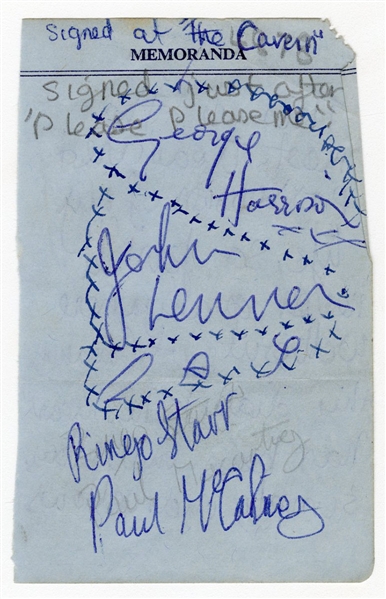 Signed at "The Cavern"
MEMORANDA
Signed just after
"Please Please me"
George
Harrison
John
Lennon
Ringo Starr
Paul McCartney